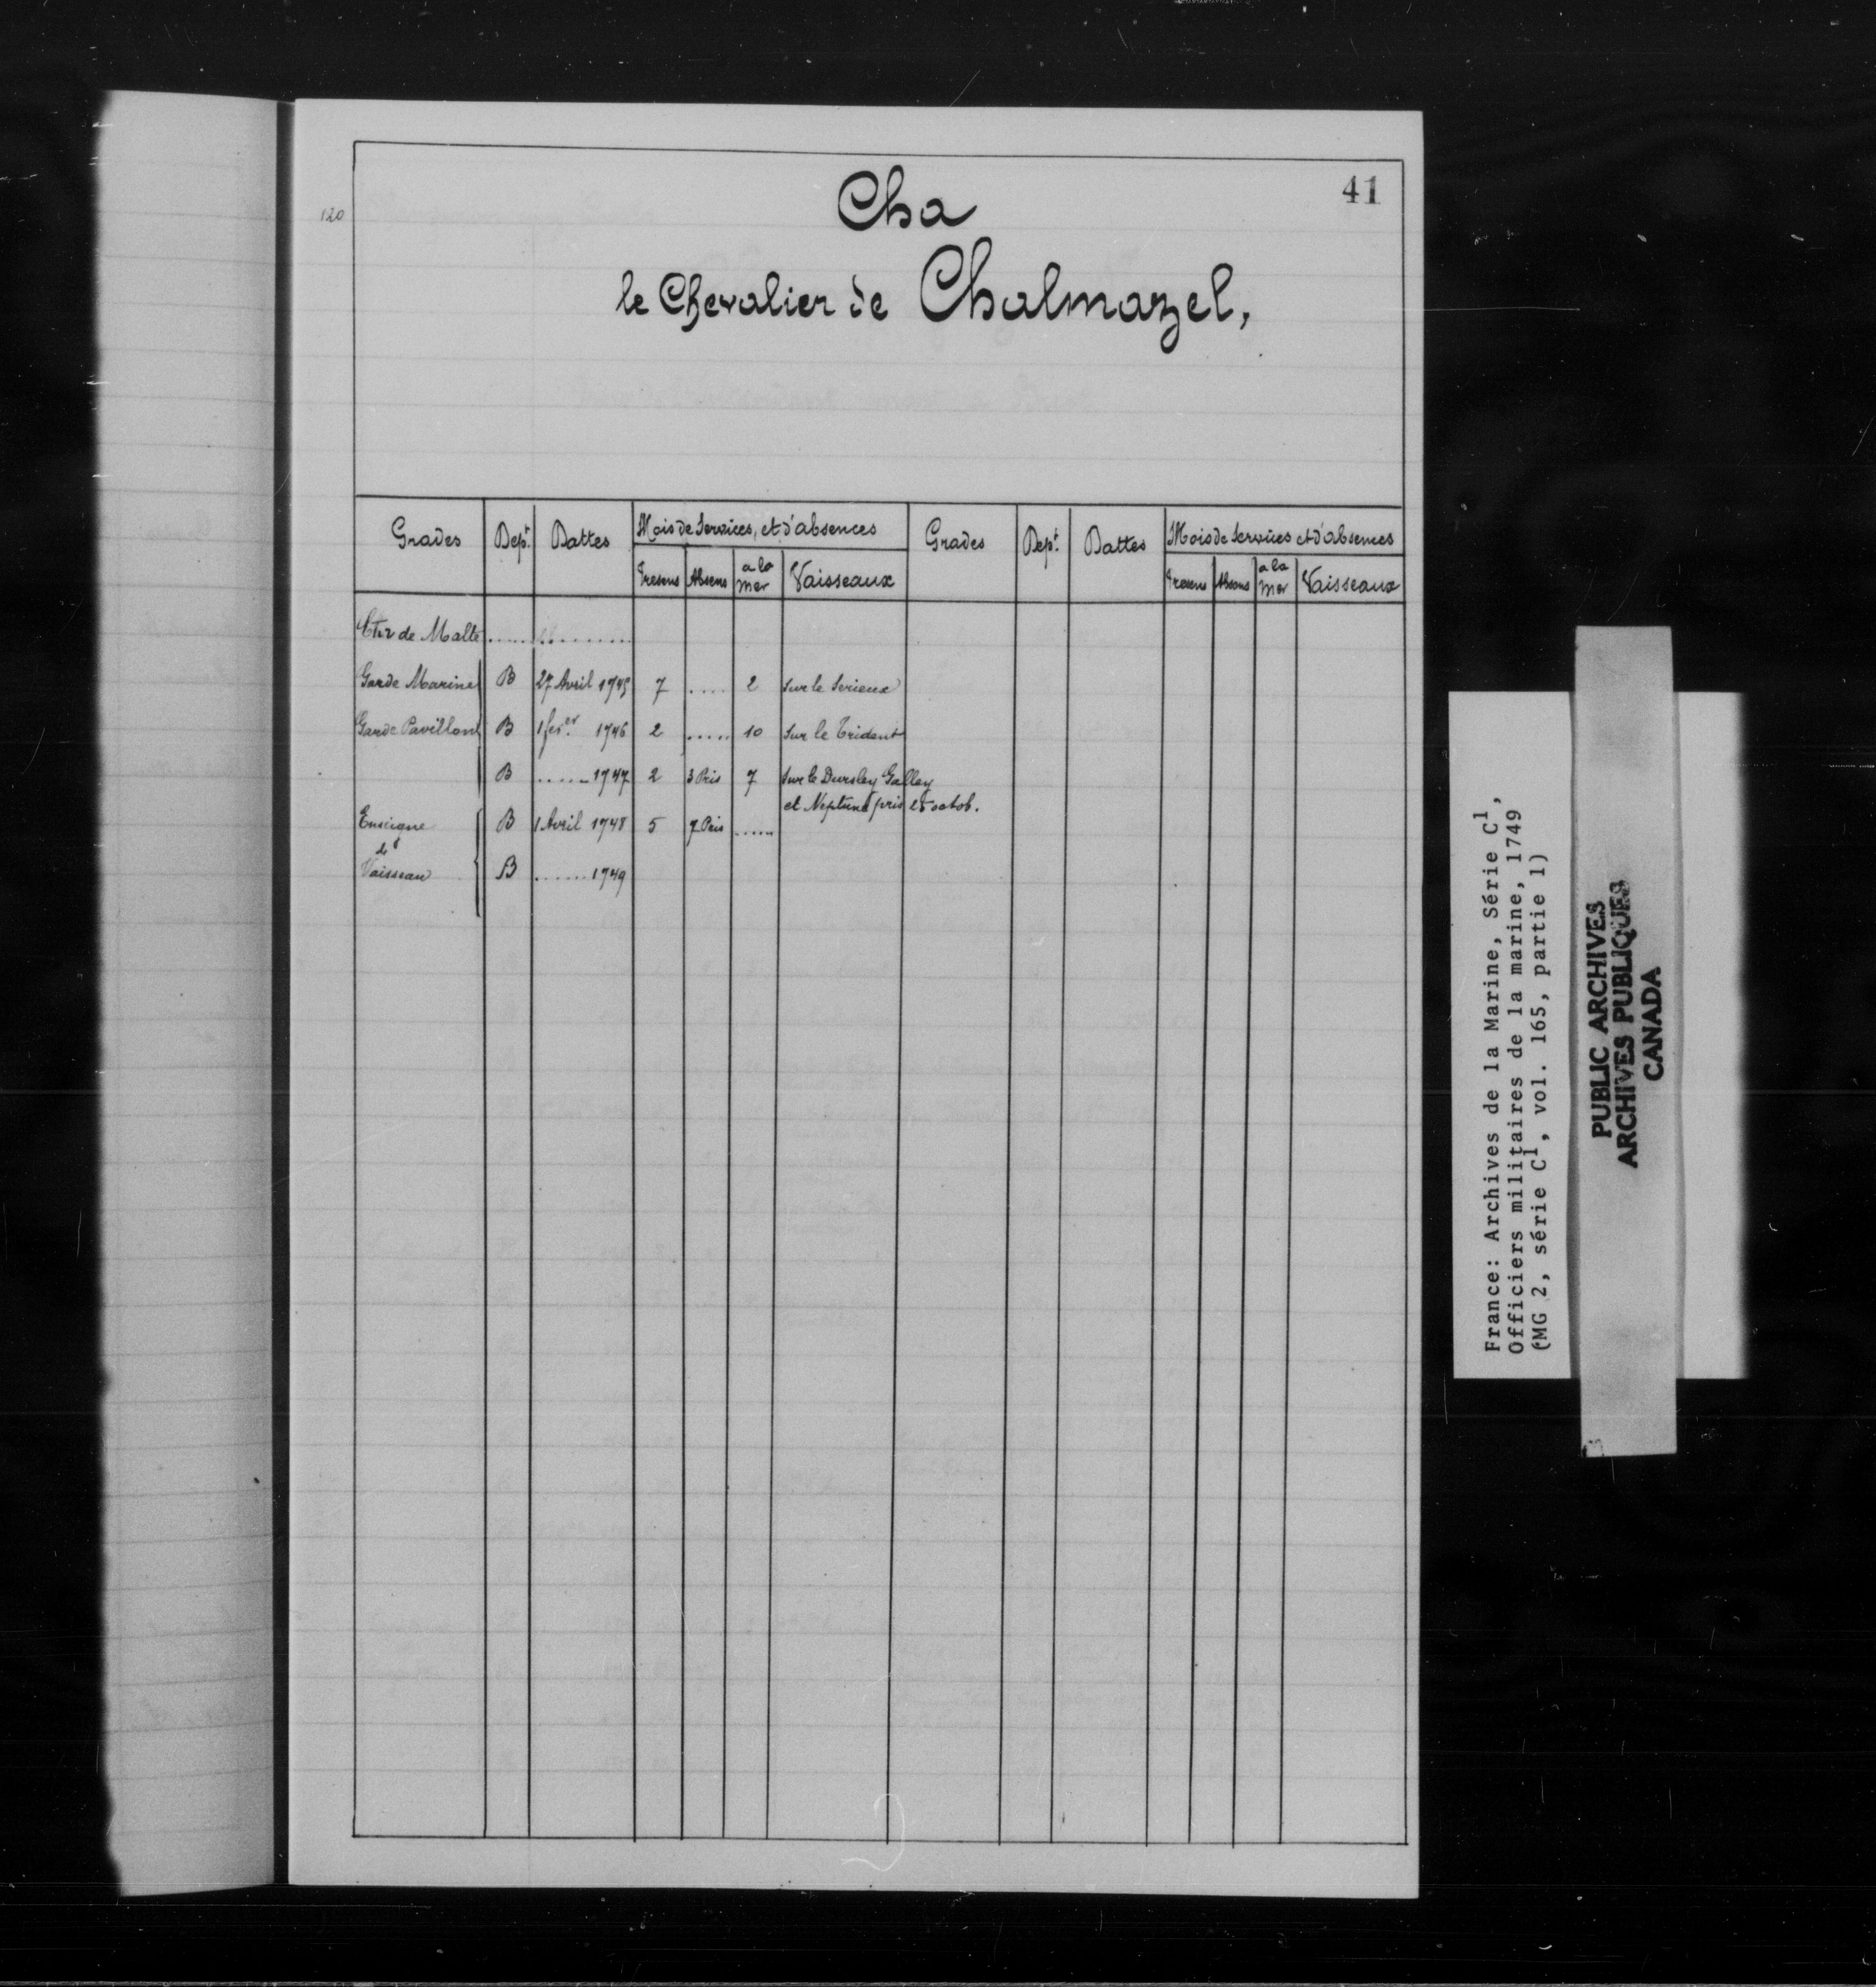 120
41
Cha
le Chevalier de Chalmazel,
Grades Dept. Dattes Mois de Services, et d'absences Grades Dept. Dattes Mois de Services et d'absences
Presens Absens a la mer Vaisseaux Presens Absens a la mer Vaisseaux
Cher de Malte ...............
Garde Marine B 27 Avril 1745 7 .... 2 sur le Serieux
Garde Pavillon B 1 fevr.er 1746 2 ..... 10 sur le Trident
B ...... 1747 2 3 Pris 7 sur le Dursley Galley
et Neptune pris 25 octob.
Enseigne B 1 Avril 1748 5 7 Pris ......
de
Vaisseau B ....... 1749
France: Archives de la Marine, Série C1,
Officiers militaires de la marine, 1749
(MG 2, série C1, vol. 165, partie 1)
PUBLIC ARCHIVES
ARCHIVES PUBLIQUES
CANADA